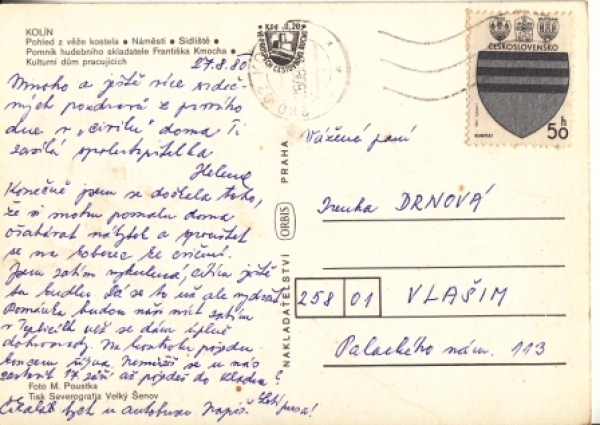 KOLÍN
Pohled z věže kostela • Náměstí • Sídliště •
Pomník hudebního skladatele Františka Kmocha •
Kulturní dům pracujících
27.8.80
Mnoho a ještě více srdeč-
ných pozdravů z prvního
dne v „civilu" doma Ti
zasílá spolutrpitelka
Helena
Konečně jsem se dočkala toho,
že si mohu pomalu doma
nábytek a
se na koberec ke cvičení.
Jsem zatím vykulená, cítím ještě
tu budku. Dá se to už ale vydržet
budou naši mít zatím
v Teplicích než se dám úplně
dohromady. Na kontrolu pojedu
koncem října. Nemůžeš se u nás
zastavit 17. září až pojedeš do Kladna?
Foto M. Poustka
Tisk Severografia Velký Šenov
Čekala bych u autobusu. Napiš.
Kčs 0,20
NAKLADATELSTVÍ ORBIS PRAHA
ČESKOSLOVENSKO
50 h
Vážená paní
Irenka DRNOVÁ
258 01 VLAŠIM
Palackého nám. 113